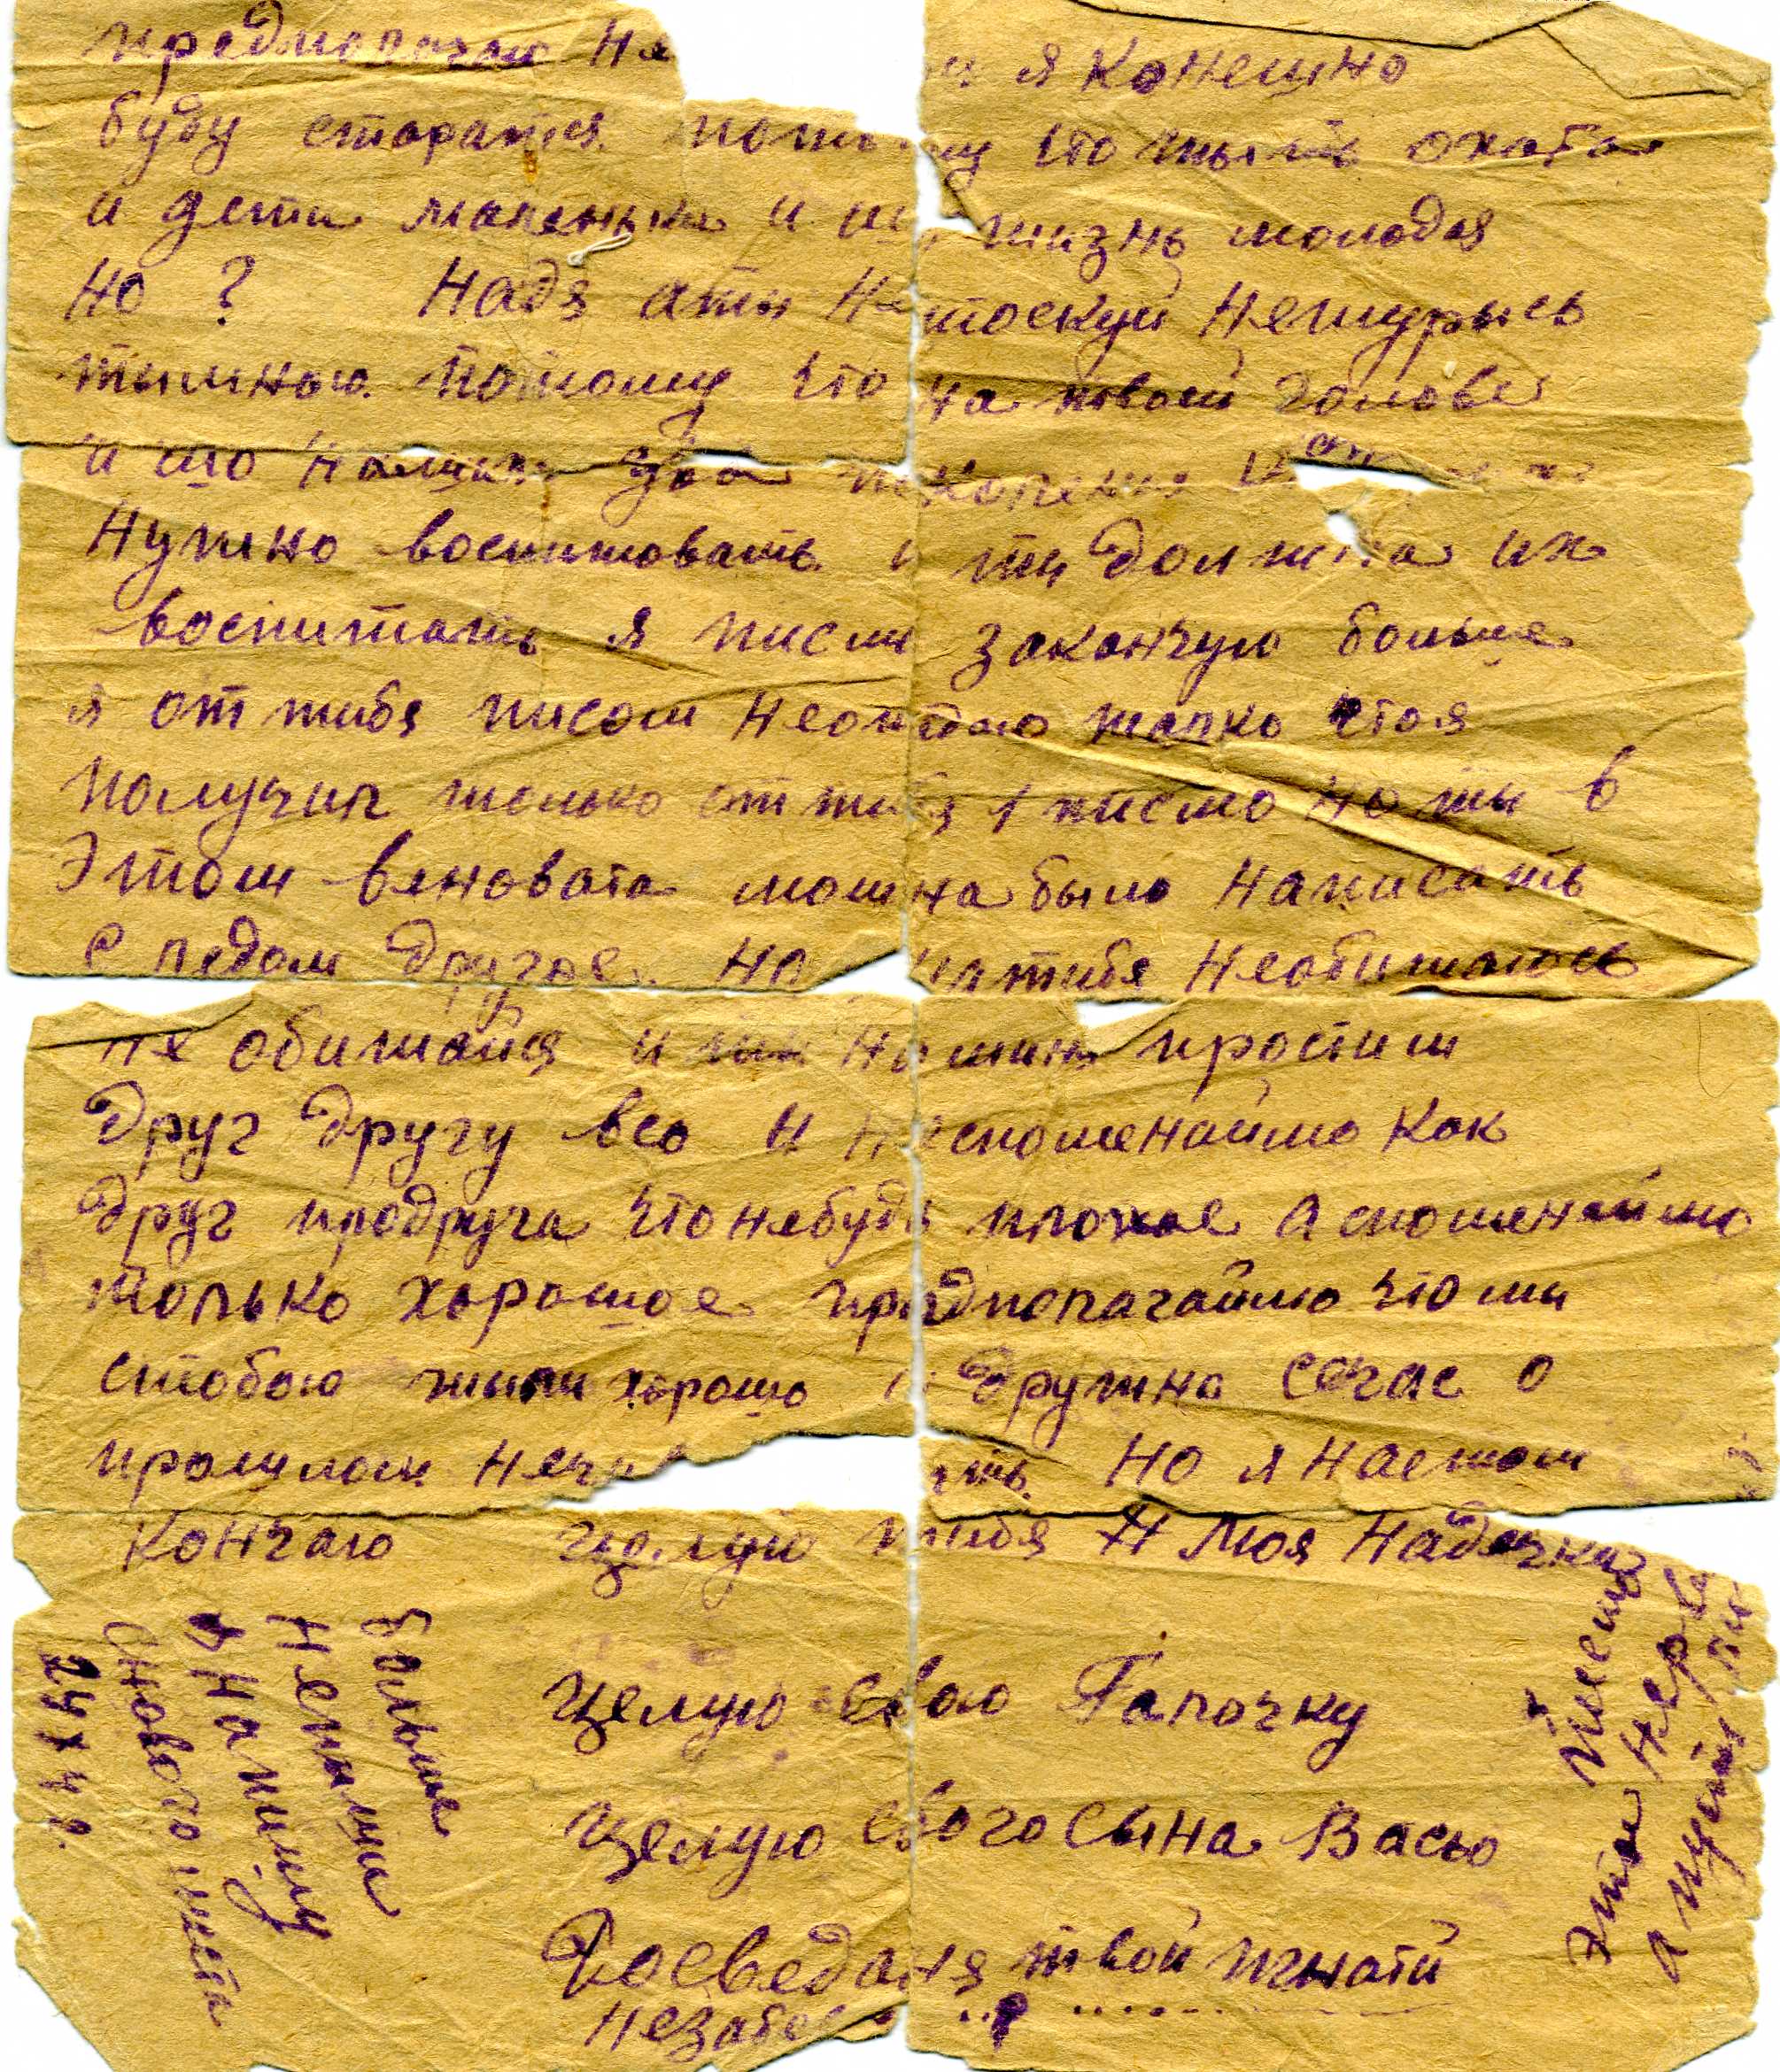 предполочаю не я конешно
буду старатся потому что жыть охота
и дети маленьки и жизнь молодая
но ? Надя аты нетоскуй нежурысь
тымною потому что на твоей голове
и що нашых два
нужно воспитовать и ты должна их
воспитать я писмо закончую больше
я от тибя писом неожидаю жалко чтоя
получил только от тибя 1 писмо но ты в
этом веновата можна было написать
следом другое. Но на тибя необижаюсь
не обижайся и ты на миня простим
друг другу всо и неспоменаймо как
друг продруга чтонебудь плохое а споменаймо
только хорошое предполагаймо что мы
стобою жыли хорошо и дружно сечас о
прошлом Но я наетом
кончаю целую тибя Н моя Надечка
целую свою Галочку
целую свого сына Васю
Досведаня твой игнатий
незабе
больше
непышы
а напишу
снового места
24 X 42
этои нер
а пусть